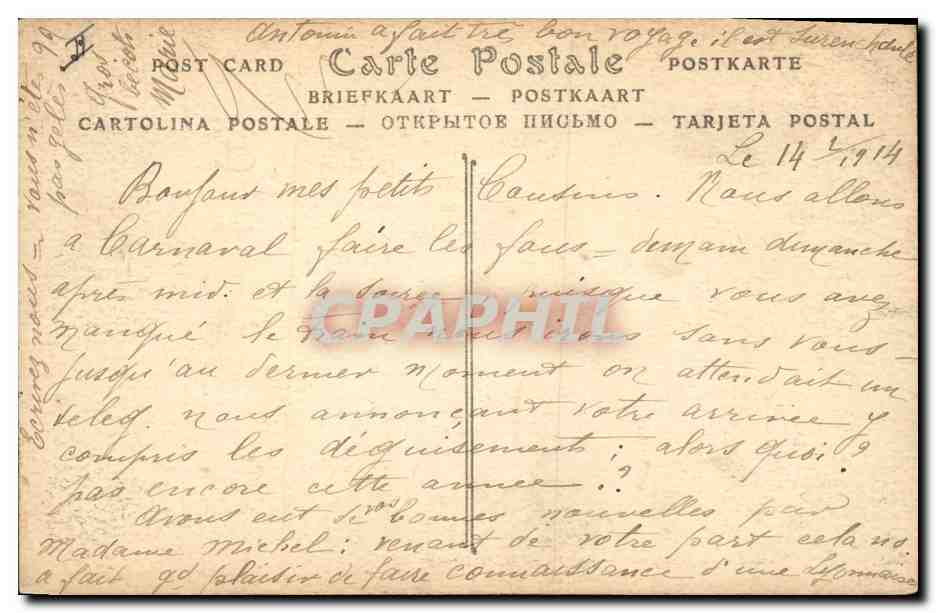 Antonin a fait très bon voyage, il est
POST CARD Carte Postale POSTKARTE
BRIEFKAART — POSTKAART
CARTOLINA POSTALE — ОТКРЫТОЕ ПИСЬМО — TARJETA POSTAL
Le 14 2/1914
Bonjour mes petits Cousins. Nous allons
a Carnaval faire les fous = demain dimanche
après mid. et la soirée, puisque vous avez
manqué le train nous irons sans vous =
jusqu'au dernier moment on attendait un
teleg. nous annonçant votre arrivée y
compris les déguisements; alors quoi?
pas encore cette année!?
Avons eut de vos bonnes nouvelles par
Madame Michel: venant de votre part cela ns
a fait gd plaisir de faire connaissance d'une Lyonnaise
Ecrivez nous = vous n'êtes pas gelés
Gros becots
Marie
CPAPHIL